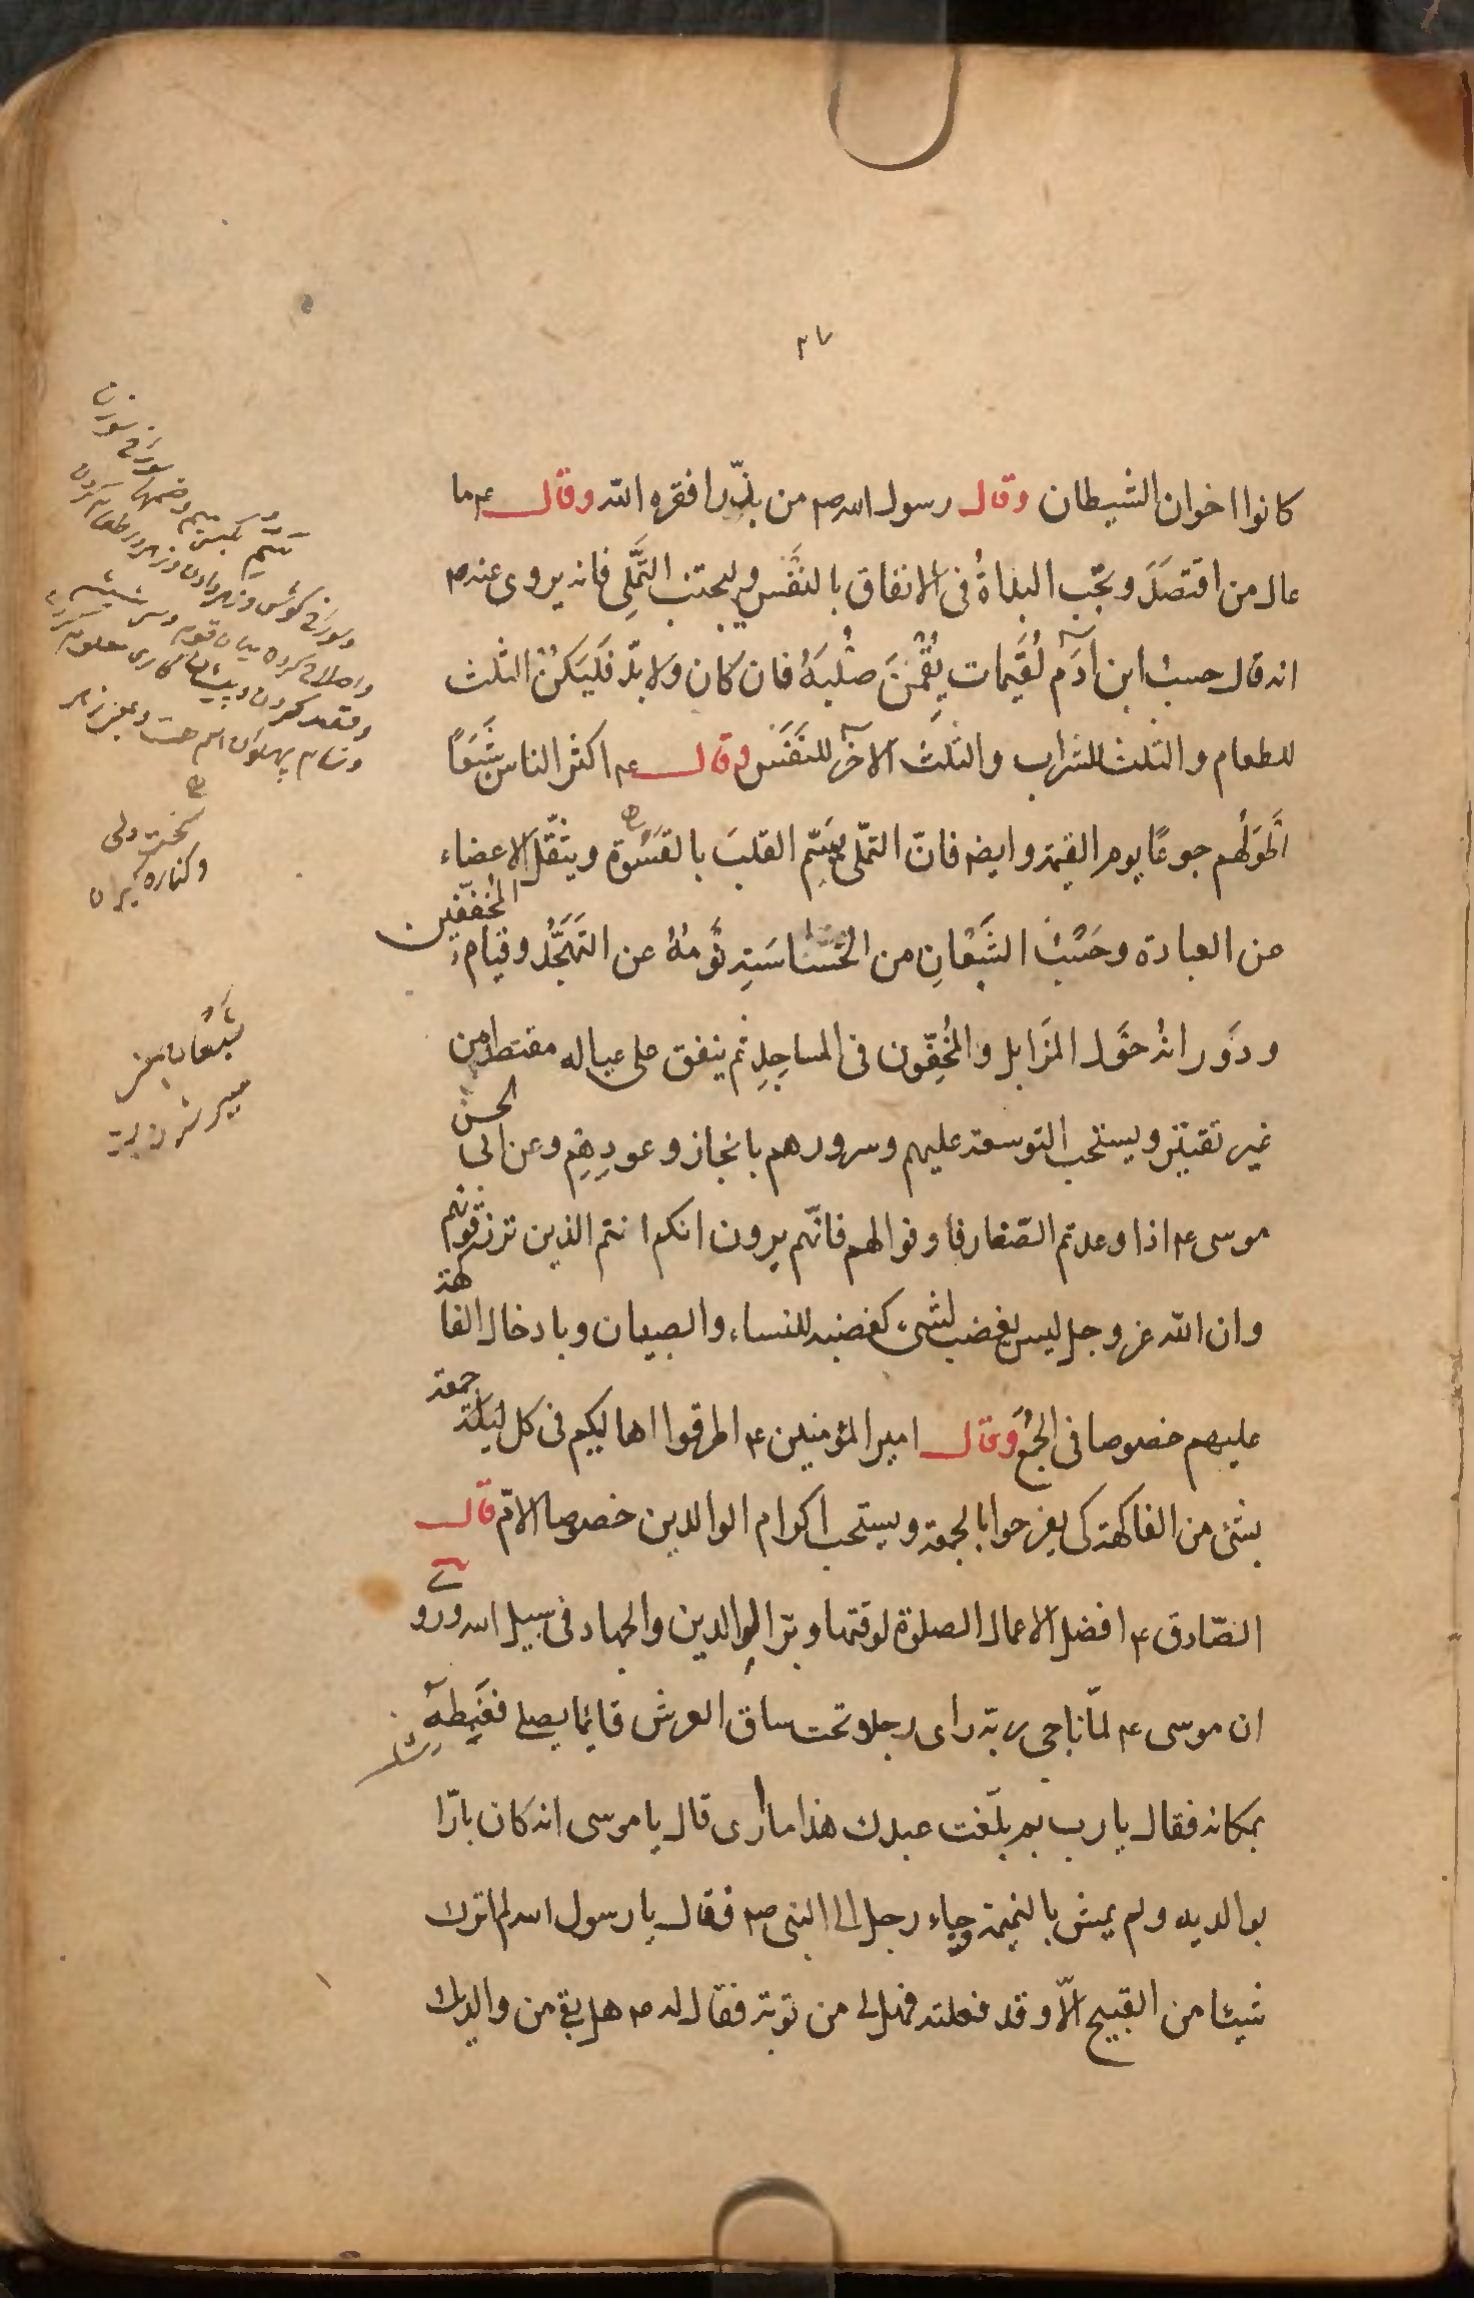 ٢٧
كانوا اخوان الشيطان وقال رسول الله ص من بذّر افقره الله وقال ع ما
عال من اقتصد وتجب البداة فى الانفاق بالنفس وليجتنب التملّى فانه يروى عنه ص
انه قال حسب ابن آدم لقيمات يقمن صلبه فان كان ولا بدّ فليكن الثلث
للطعام والثلث للشراب والثلث الآخر للنفس وقال ع اكثر الناس شبعًا
اطولهم جوعًا يوم القيمة وايضه فانّ التملّى يسمّ القلب بالقسوة ويثقّل الاعضاء
عن العبادة وحسب الشبعان من الخساسة نومه عن التهجّد وقيام المخففين
ودورانه حول المزابل والمخفّون فى المساجد ثم ينفق على عياله مقتصدا من
غير تقتير ويستحب التوسعة عليهم وسرورهم بانجاز وعودهم وعن ابى الحسن
موسى ع اذا وعدتم الصّغار فاوفوا لهم فانّهم يرون انكم انتم الذين ترزقونهم
وان الله عز وجل ليس يغضب لشىء كغضبه للنساء والصبيان وبادخال الفاكهة
عليهم خصوصا فى الجمع وقال امير المؤمنين ع اطرقوا اهاليكم فى كل ليلة جمعة
بشىء من الفاكهة كى يفرحوا بالجمعة ويستحب اكرام الوالدين خصوصا الامّ قال
الصّادق ع افضل الاعمال الصلوة لوقتها وبرّ الوالدين والجهاد فى سبيل الله وروى
ان موسى ع لمّا ناجى ربه راى رجلا تحت ساق العرش قائما يصلى فغبطه
بمكانه فقال يا رب بم بلّغت عبدك هذا ما ارى قال يا موسى انه كان بارّا
بوالديه ولم يمش بالنميمة وجاء رجل الى النبى ص فقال يا رسول الله لم اترك
شيئا من القبيح الّا وقد فعلته فهل لى من توبة فقال له ص هل بقى من والديك
سوراخ سوزن
سخت دلى
وكناره گيران
شبعان بمعنى
سير شدنست